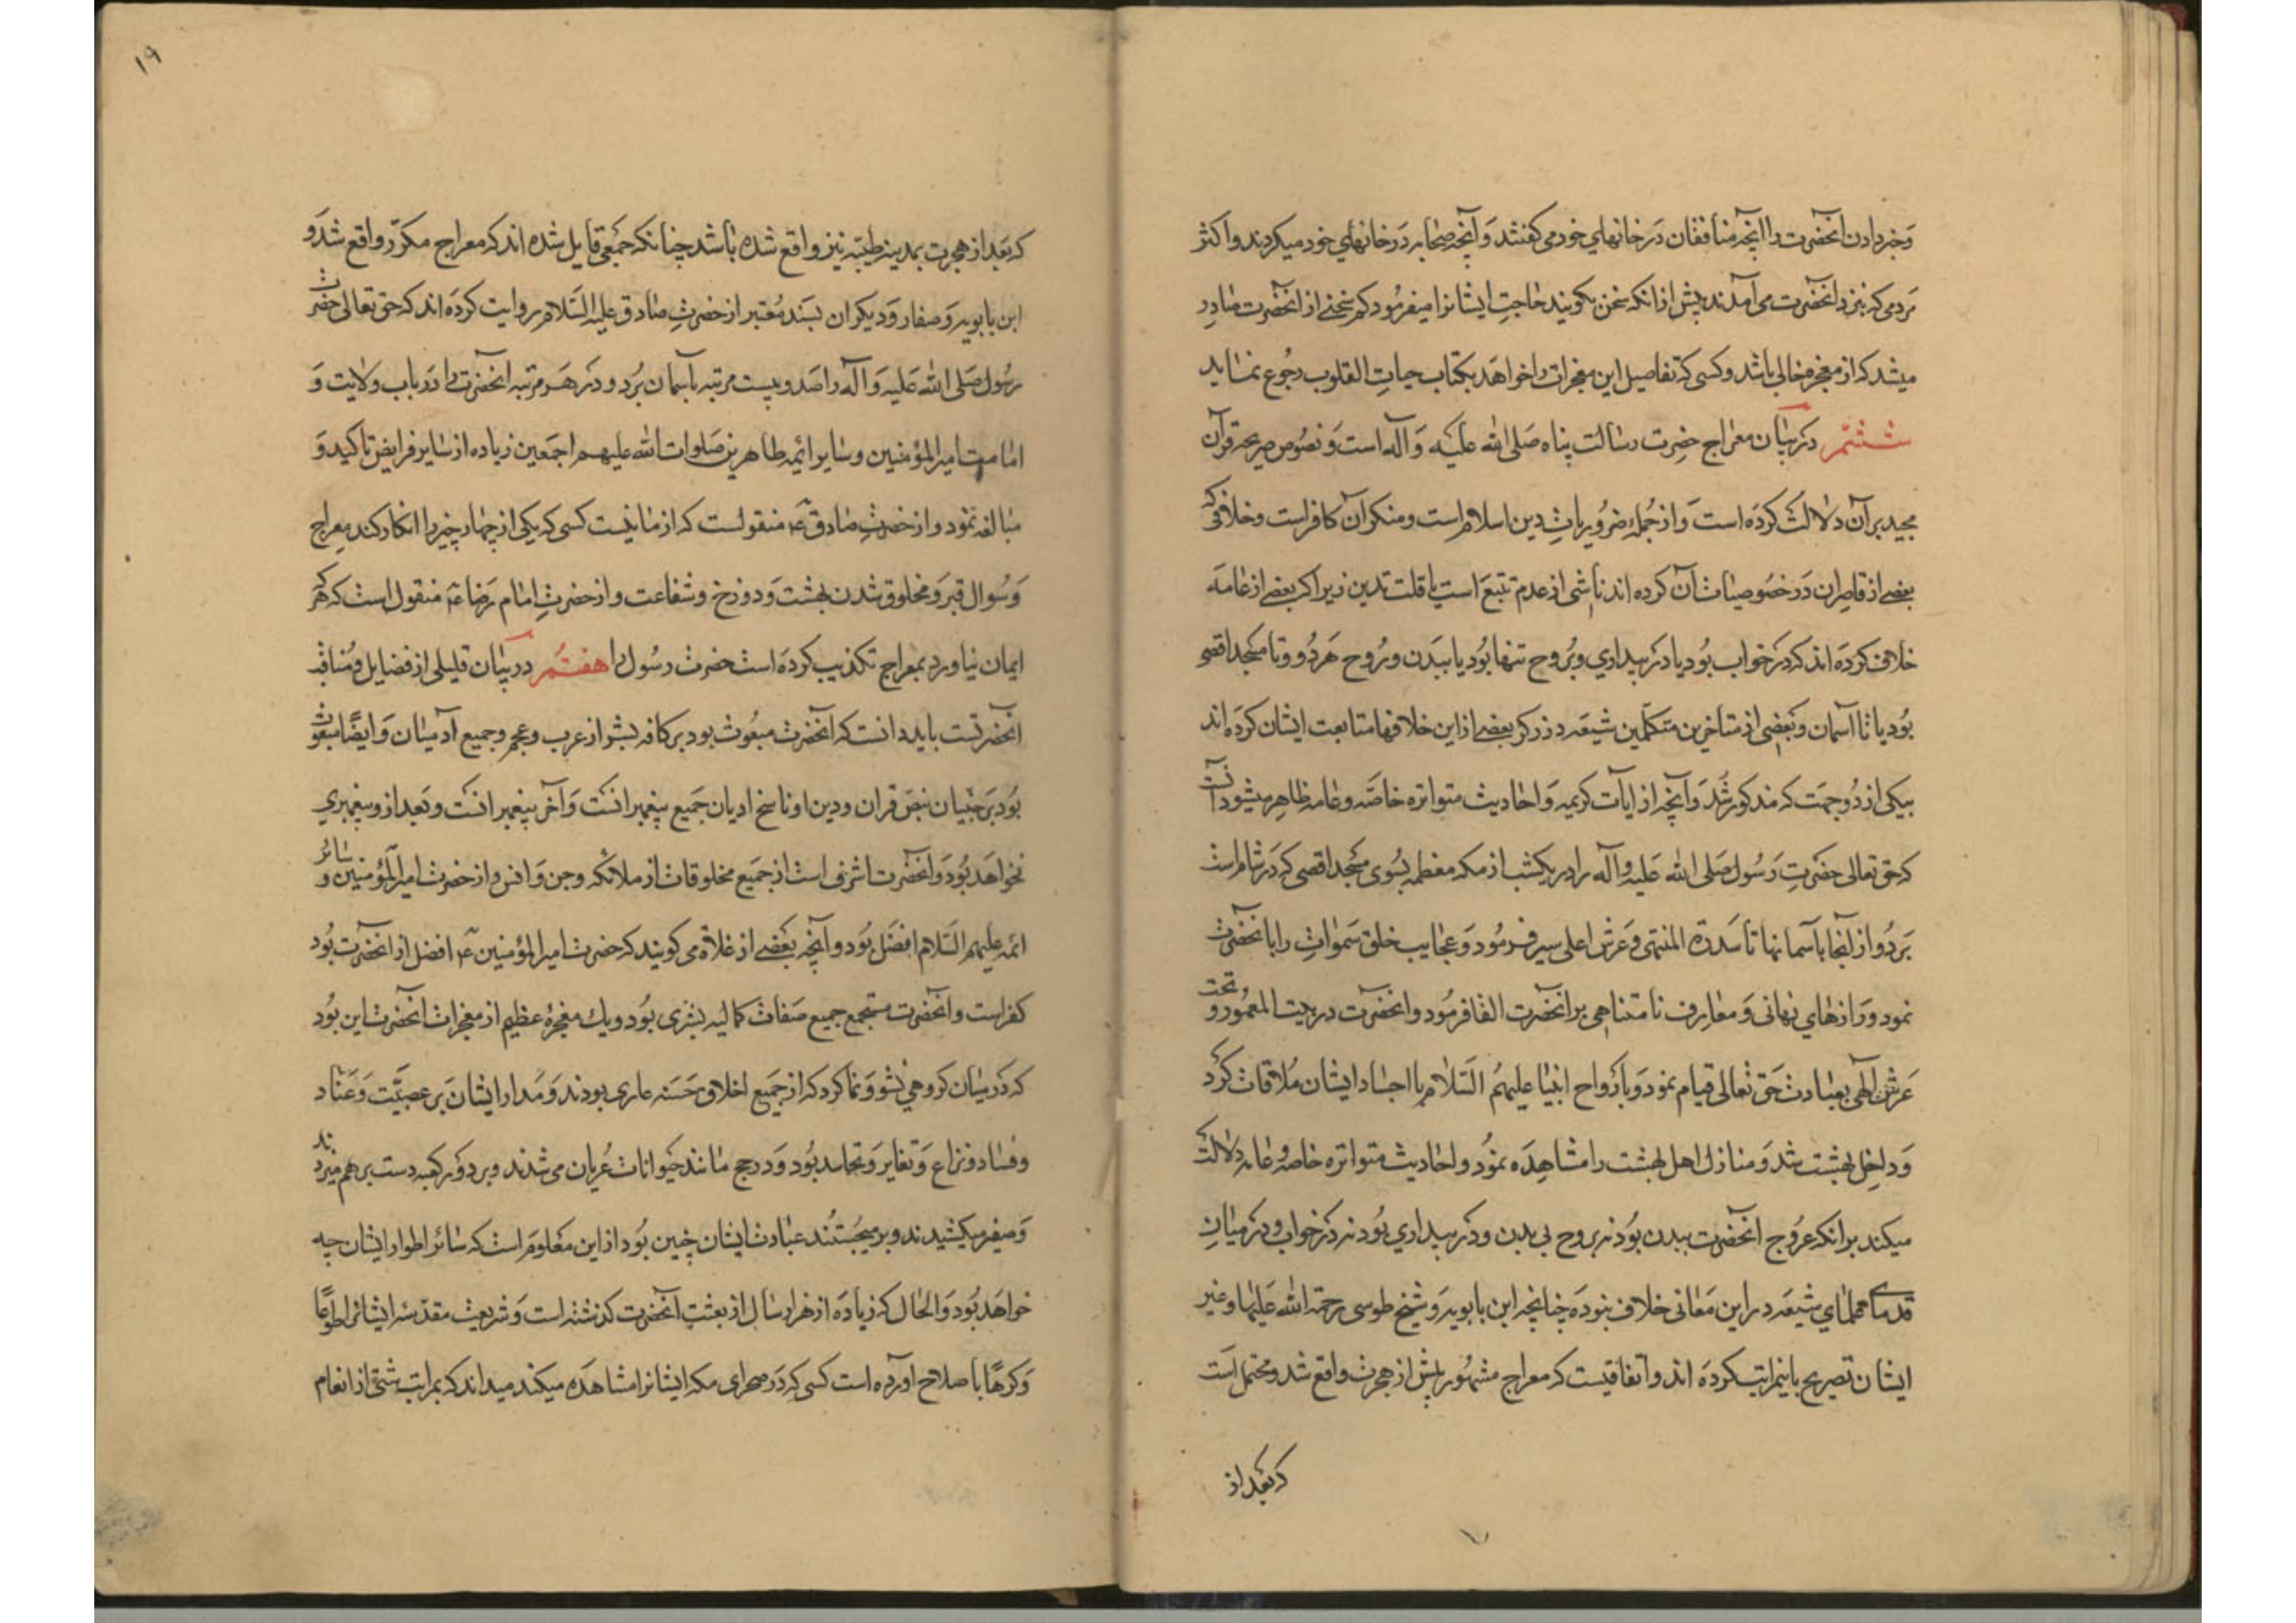 وخبر دادن آنحضرت را آنچه منافقان در خانهای خود می کفتند و آنچه صحابه در خانهای خود میکردند و اکثر
مردمی که بنزد آنحضرت می آمدند پیش از آنکه سخن بکویند حاجت ایشانرا میفرمود کم سخنی از آنحضرت صادر
میشد که از معجزه خالی باشد و کسی که تفاصیل این معجزات را خواهد بکتاب حیات القلوب رجوع نماید
ششم در بیان معراج حضرت رسالت پناه صلی الله علیه و آله است و نصوص صریحه قرآن
مجید بر آن دلالت کرده است و از جمله ضروریات دین اسلام است و منکر آن کافر است و خلافی که
بعضی از قاصران در خصوصیات آن کرده اند ناشی از عدم تتبع است یا قلت تدین زیرا که بعضی از عامه
خلاف کرده اند که در خواب بود یا در بیداری و بروح تنها بود یا ببدن و روح هر دو و تا مسجد اقصی
بود یا تا آسمان و بعضی از متأخرین متکلمین شیعه در ذکر بعضی از این خلافها متابعت ایشان کرده اند
بیکی از دو جهت که مذکور شد و آنچه از آیات کریمه و احادیث متواتره خاصه و عامه ظاهر میشود آنست
که حق تعالی حضرت رسول صلی الله علیه و آله را در یکشب از مکه معظمه بسوی مسجد اقصی که در شام است
برد و از آنجا بآسمانها تا سدرة المنتهی و عرش اعلی سیر فرمود و عجایب خلق سموات را بآنحضرت
نمود و رازهای نهانی و معارف نامتناهی بر آنحضرت القا فرمود و آنحضرت در بیت المعمور و تحت
عرش الهی بعبادت حق تعالی قیام نمود و با ارواح انبیا علیهم السلام یا اجساد ایشان ملاقات کرد
و داخل بهشت شد و منازل اهل بهشت را مشاهده نمود و احادیث متواتره خاصه و عامه دلالت
میکند بر آنکه عروج آنحضرت ببدن بود نه بروح بی بدن و در بیداری بود نه در خواب و در میان
قدمای علمای شیعه در این معانی خلاف نبوده چنانچه ابن بابویه و شیخ طوسی رحمة الله علیهما و غیر
ایشان تصریح باینمراتب کرده اند و اتفاقیست که معراج مشهور پیش از هجرت واقع شد و محتمل است
که بعد از
۱۹
که بعد از هجرت بمدینه طیبه نیز واقع شده باشد چنانکه جمعی قایل شده اند که معراج مکرر واقع شد و
ابن بابویه و صفار و دیکران بسند معتبر از حضرت صادق علیه السلام روایت کرده اند که حق تعالی حضرت
رسول صلی الله علیه و آله را صد و بیست مرتبه بآسمان برد و در هر مرتبه آنحضرت را در باب ولایت و
امامت امیر المؤمنین و سایر ائمه طاهرین صلوات الله علیهم اجمعین زیاده از سایر فرایض تاکید و
مبالغه نمود و از حضرت صادق ع منقولست که از ما نیست کسی که یکی از چهار چیز را انکار کند معراج
و سوال قبر و مخلوق شدن بهشت و دوزخ و شفاعت و از حضرت امام رضا ع منقول است که هر که
ایمان نیاورد بمعراج تکذیب کرده است حضرت رسول را هفتم در بیان قلیلی از فضایل و مناقب
آنحضرتست باید دانست که آنحضرت مبعوث بود بر کافه بشر از عرب و عجم و جمیع آدمیان و ایضا مبعوث
بود بر جنیان بنص قران و دین او ناسخ ادیان جمیع پیغمبرانست و آخر پیغمبرانست و بعد از و پیغمبری
نخواهد بود و آنحضرت اشرف است از جمیع مخلوقات از ملائکه و جن و انس و از حضرت امیر المؤمنین و سائر
ائمه علیهم السلام افضل بود و آنچه بعضی از غلاة می کویند که حضرت امیر المؤمنین ع افضل از آنحضرت بود
کفر است و آنحضرت مستجمع جمیع صفات کمالیه بشری بود و یک معجزه عظیم از معجزات آنحضرت این بود
که در میان کروهی نشو و نما کرد که از جمیع اخلاق حسنه عاری بودند و مدار ایشان بر عصبیت و عناد
و فساد و نزاع و تغایر و تحاسد بود و در حج مانند حیوانات عریان می شدند و بر دور کعبه دست بر هم میزدند
و صفیر میکشیدند و بر میجستند عبادت ایشان چنین بود از این معلوم است که سائر اطوار ایشان چه
خواهد بود و الحال که زیاده از هزار سال از بعثت آنحضرت کذشته است و شریعت مقدسه ایشانرا طوعا
و کرها باصلاح آورده است کسی که در صحرای مکه ایشانرا مشاهده میکند میداند که بمراتب شتی از انعام